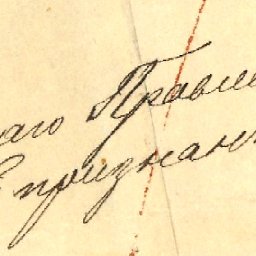 наго Правле
признан